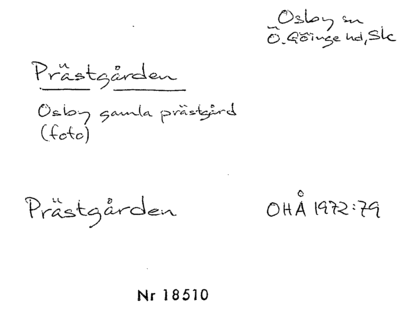 Osby sn
Ö. Göinge hd, Sk
Prästgården
Osby gamla prästgård
(foto)
Prästgården
OHÅ 1972:79
Nr 18510